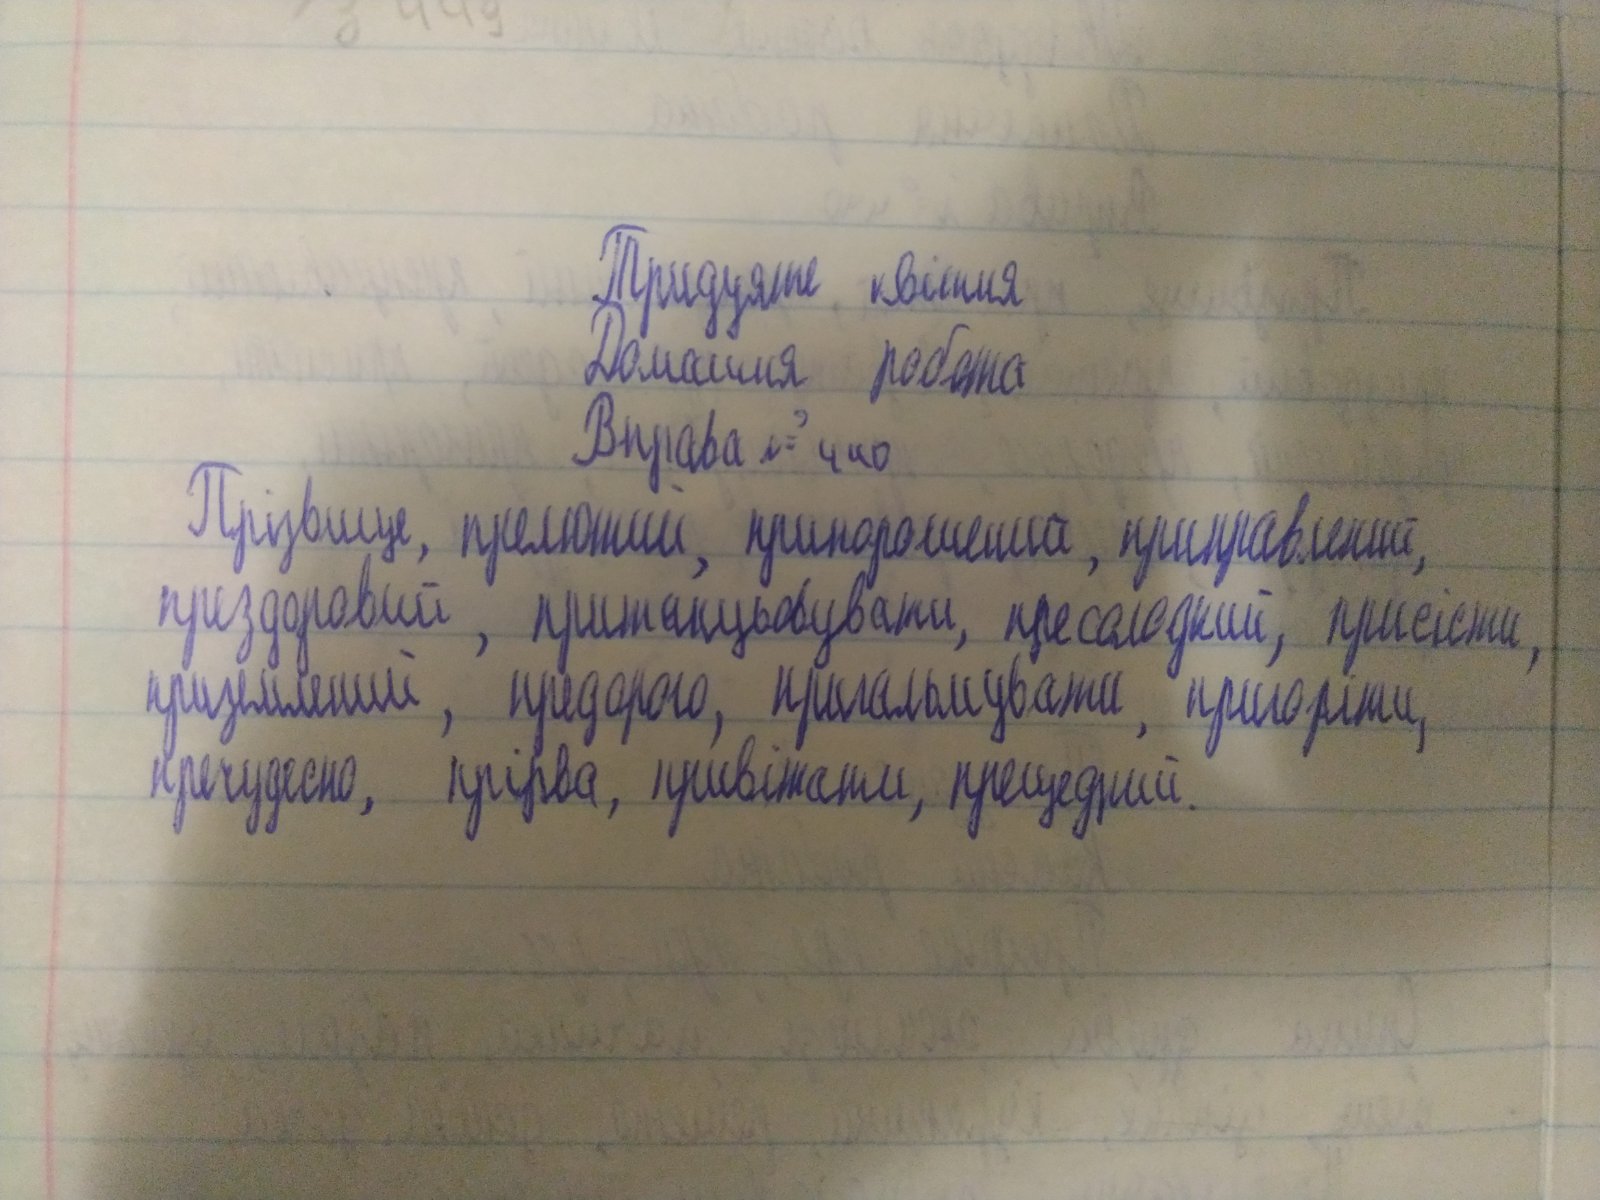 Тридцяте квітня
Домашня робота
Вправа № 440
Прізвище, прелютий, припорошений, приправлений,
прездоровий, пританцьовувати, пресолодкий, присісти,
приземлений, предорого, пригальмувати, пригоріти,
пречудесно, прірва, привітати, прещедрий.